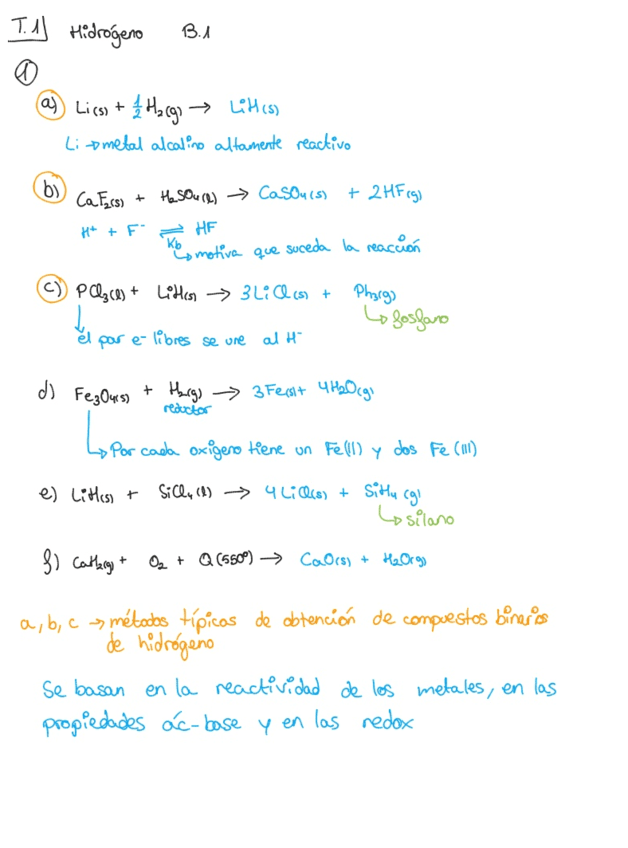 T.1 Hidrógeno B.1
①
a) Li(s) + 1/2 H₂(g) → LiH(s)
Li → metal alcalino altamente reactivo
b) CaF₂(s) + H₂SO₄(l) → CaSO₄(s) + 2HF(g)
H⁺ + F⁻ ⇌ HF
Kb
↳ motiva que suceda la reacción
c) PCl₃(l) + LiH(s) → 3LiCl(s) + Ph₃(g)
↳ fosfano
el par e- libres se une al H⁻
d) Fe₃O₄(s) + H₂(g) → 3Fe(s) + 4H₂O(g)
reductor
↳ Por cada oxígeno tiene un Fe(II) y dos Fe(III)
e) LiH(s) + SiCl₄(l) → 4LiCl(s) + SiH₄(g)
↳ silano
f) CaH₂(g) + O₂ + Q(550°) → CaO(s) + H₂O(g)
a, b, c → métodos típicos de obtención de compuestos binarios
de hidrógeno
Se basan en la reactividad de los metales, en las
propiedades ác-base y en las redox